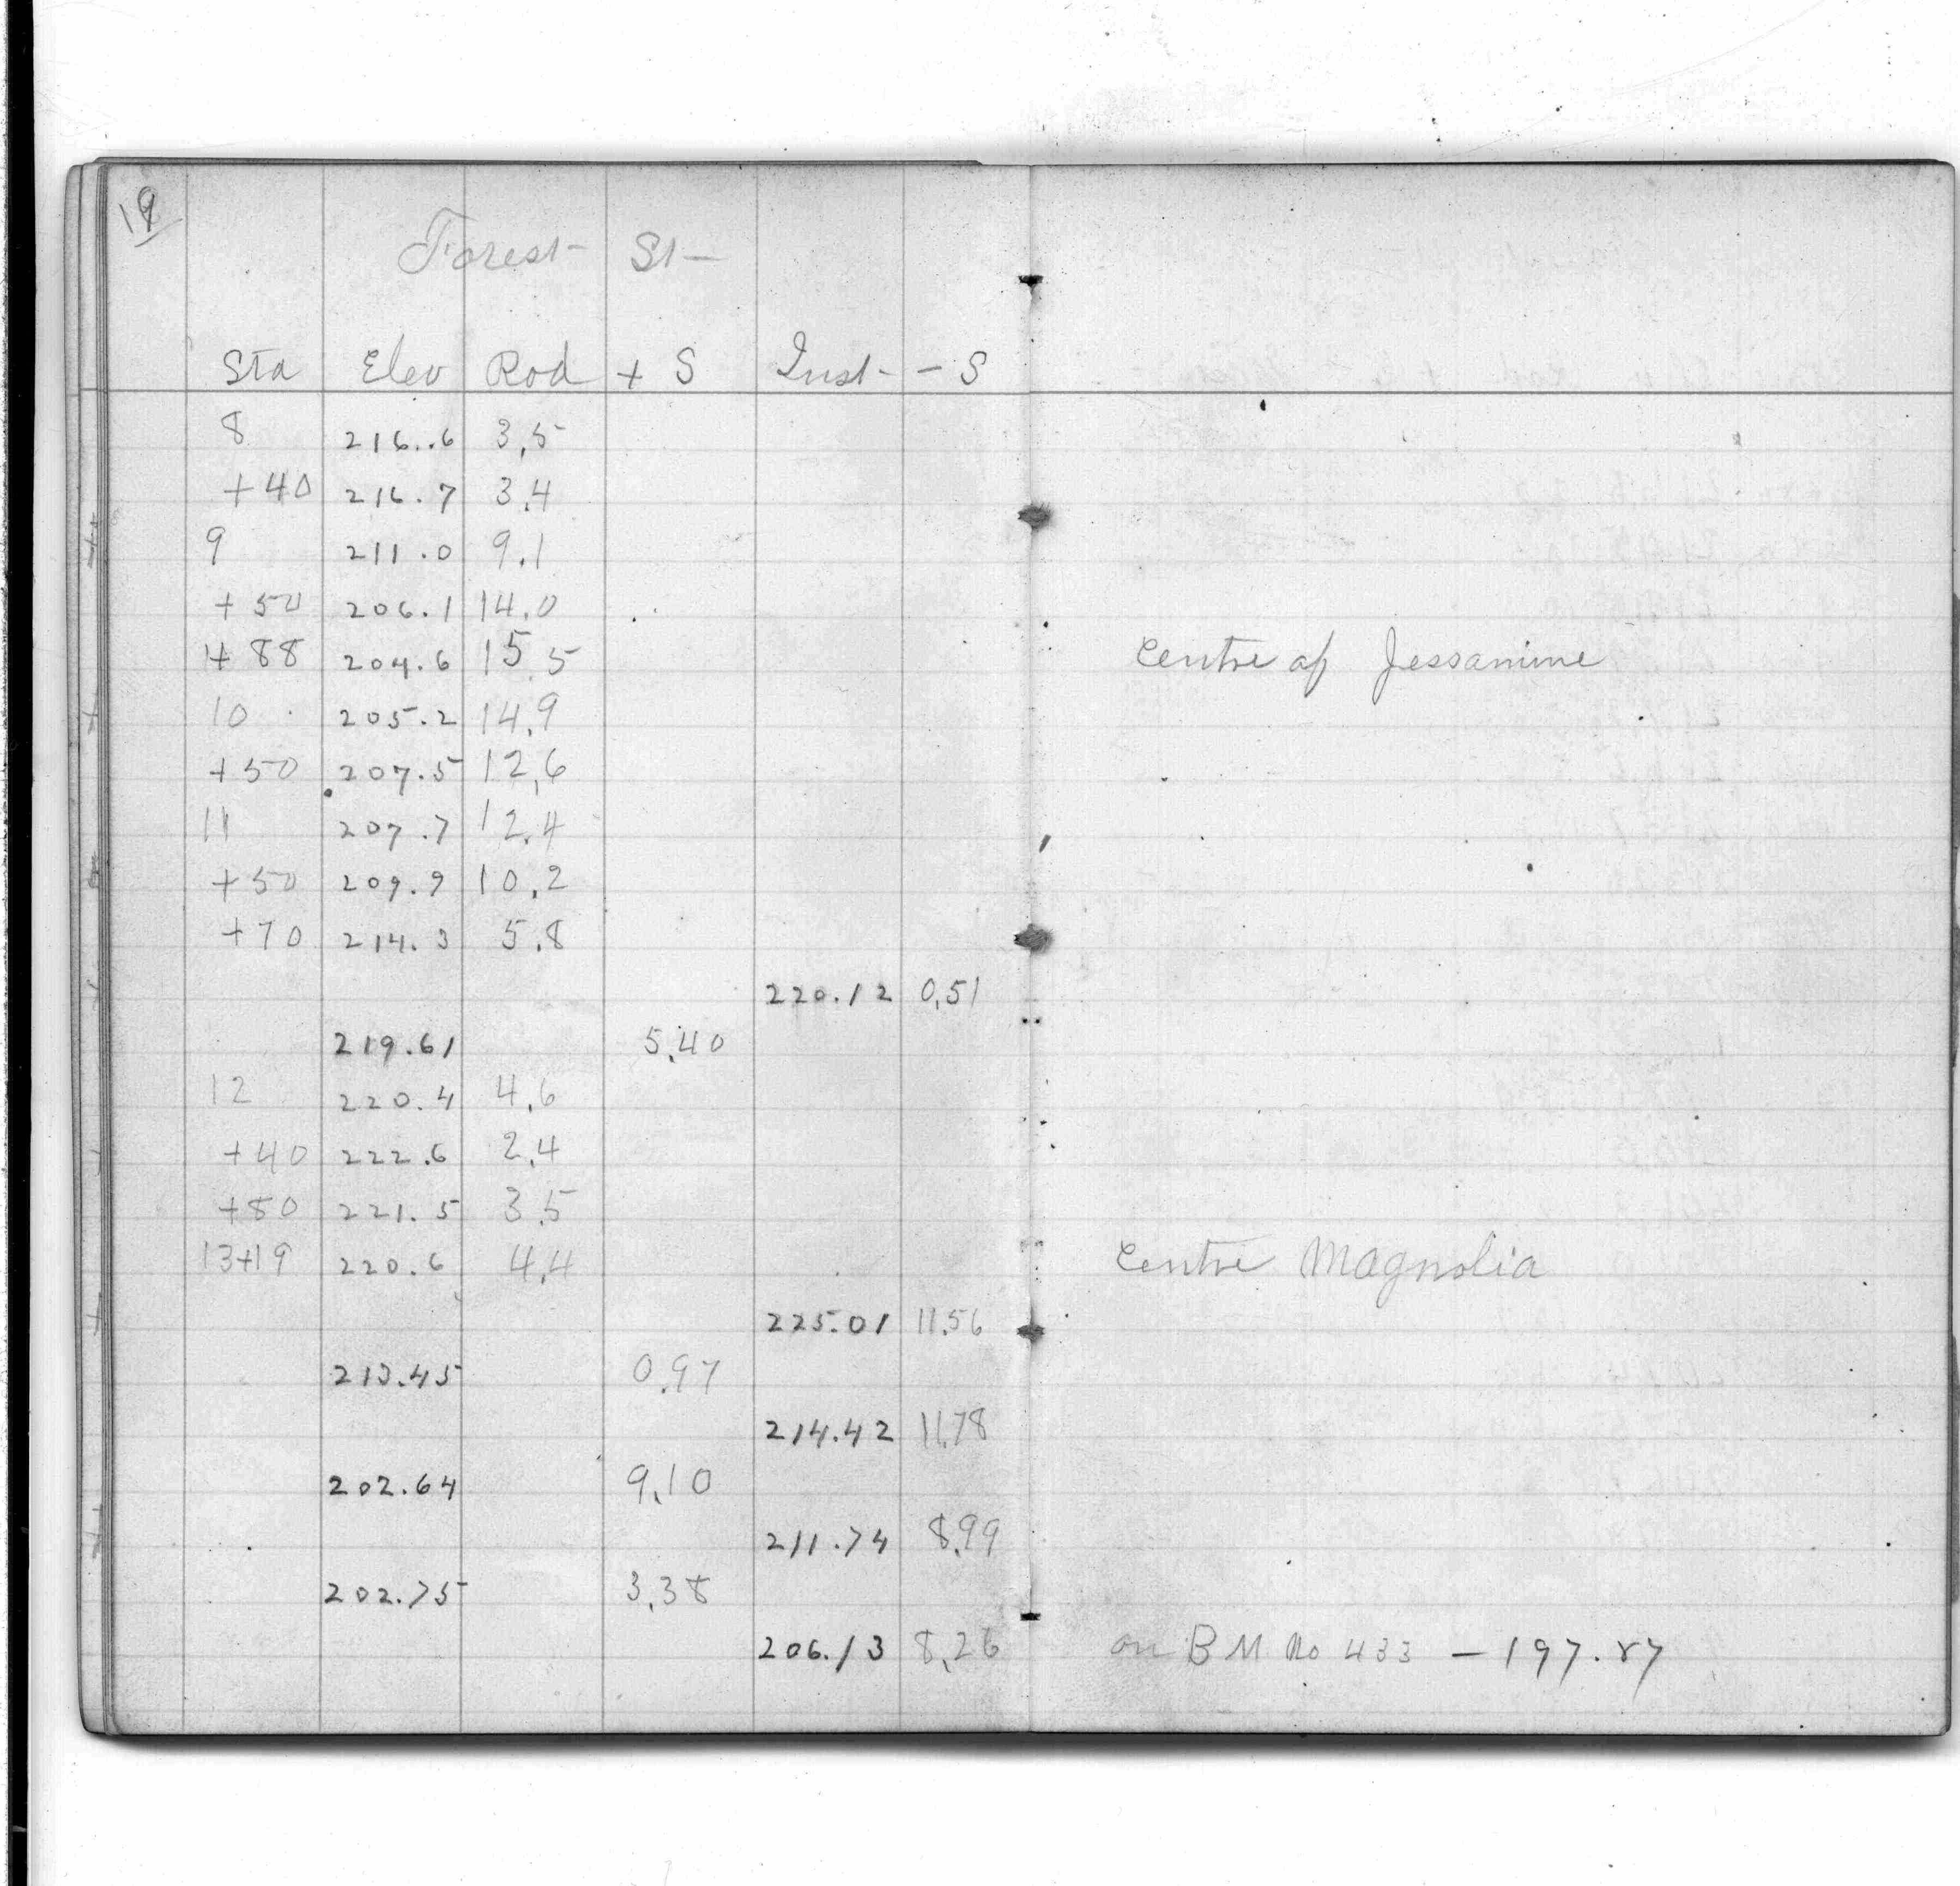 19
Forest St
Sta Elev Rod + S Inst - S
8 216.6 3.5
+40 216.7 3.4
9 211.0 9.1
+50 206.1 14.0
+88 204.6 15.5 Centre of Jessamine
10 205.2 14.9
+50 207.5 12.6
11 207.7 12.4
+50 209.9 10.2
+70 214.3 5.8
220.12 0.51
219.61 5.40
12 220.4 4.6
+40 222.6 2.4
+80 221.5 3.5
13+19 220.6 4.4 Centre Magnolia
225.01 11.56
213.45 0.97
214.42 11.78
202.64 9.10
211.74 8.99
202.75 3.38
206.13 8.26 on B M No 433 — 197.87